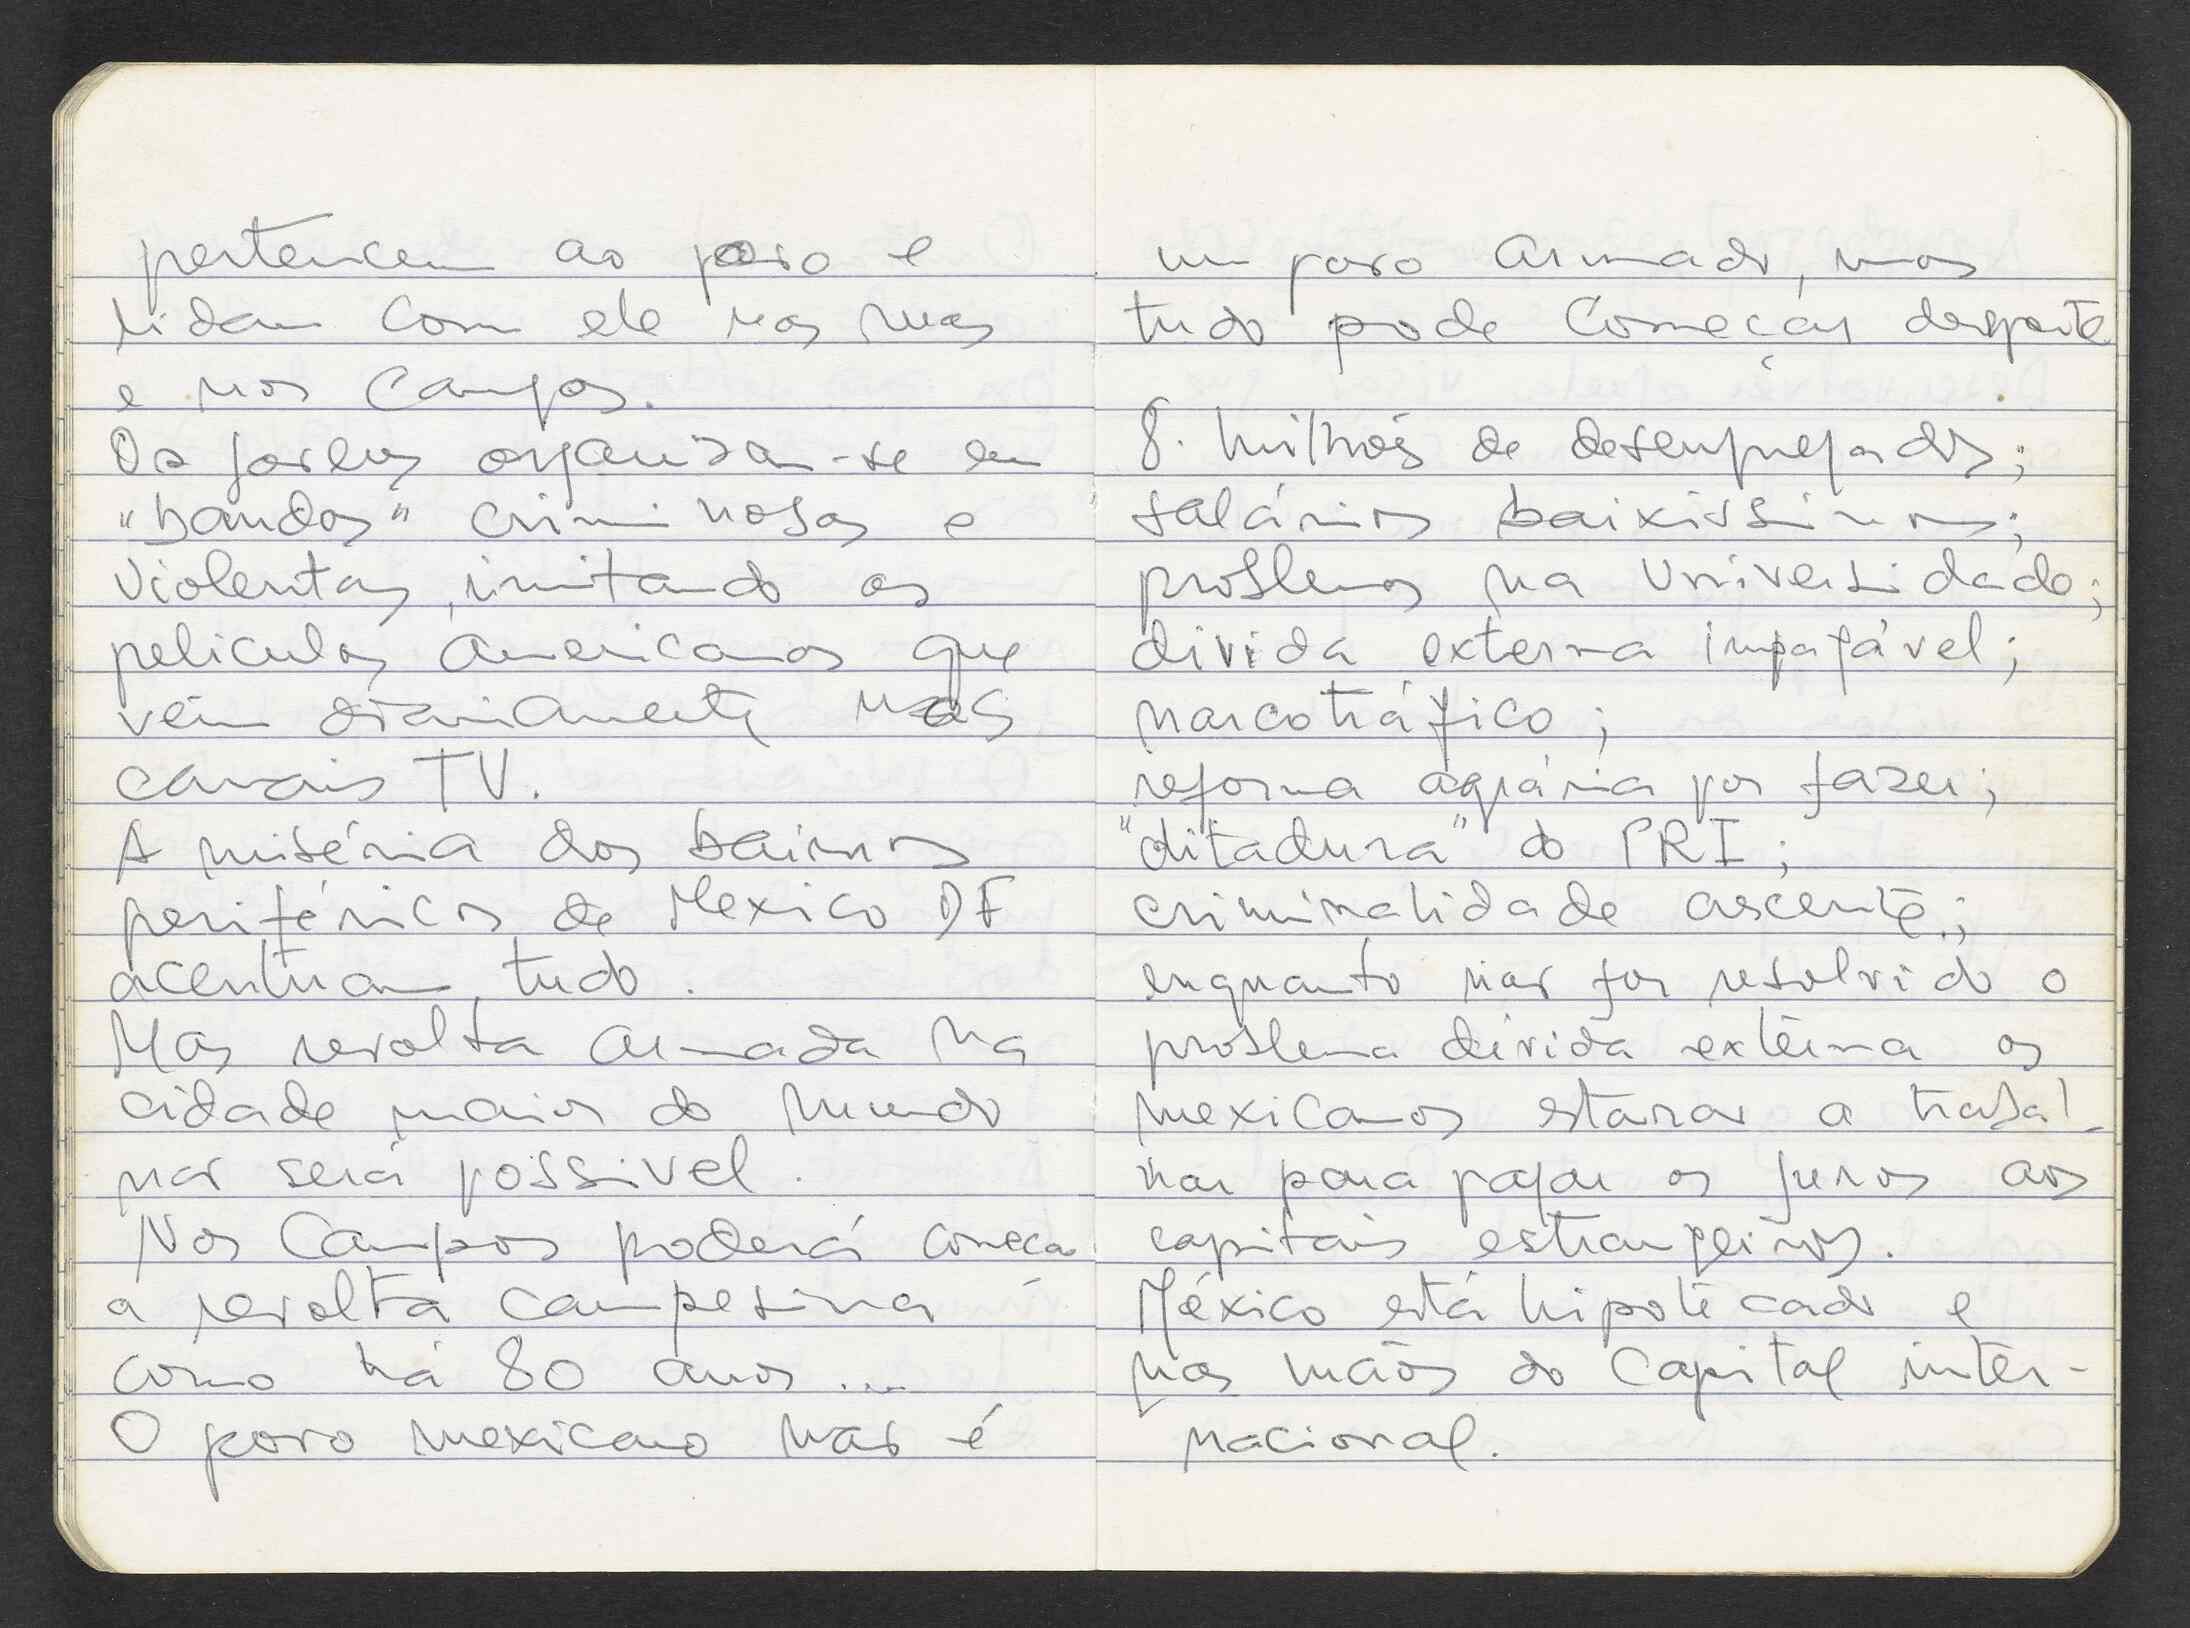 pertencem ao povo e
lidam com ele nas ruas
e nos campos.
Os jovens organizam-se em
"bandos" criminosos e
violentos, imitando as
peliculas americanas que
vêm diariamente nos
canais TV.
A miséria dos bairros
periféricos de Mexico DF
acentuam tudo.
Mas revolta armada na
cidade maior do mundo
não será possivel.
Nos campos poderá começar
a revolta campesina
como há 80 anos...
O povo mexicano não é
um povo armado, mas
tudo pode começar
8. milhões de desempregados;
salários baixissimos;
problemas na Universidade;
divida externa impagável;
narcotráfico;
reforma agrária por fazer;
"ditadura" do PRI;
criminalidade ascente;
enquanto não for resolvido o
problema divida externa os
mexicanos estarão a trabal-
har para pagar os juros aos
capitais estrangeiros.
México está hipotecado e
nas mãos do capital inter-
nacional.